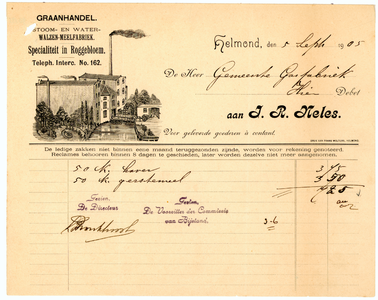 GRAANHANDEL.
STOOM- EN WATER-
WALZEN-MEELFABRIEK.
Specialiteit in Roggebloem.
Teleph. Interc. No. 162.
Helmond, den 5 Sept 1905
De Heer Gemeente Gasfabriek
Hier Debet
aan J. R. Neles.
Voor geleverde goederen à contant.
De ledige zakken niet binnen eene maand teruggezonden zijnde, worden voor rekening genoteerd.
Reclames behooren binnen 8 dagen te geschieden, later worden dezelve niet meer aangenomen.
50 K. haver 3,75
50 K. gerstemeel 3,50
7,25
Gezien,
De Directeur
Gezien,
De Voorzitter der Commissie
van Bijstand.